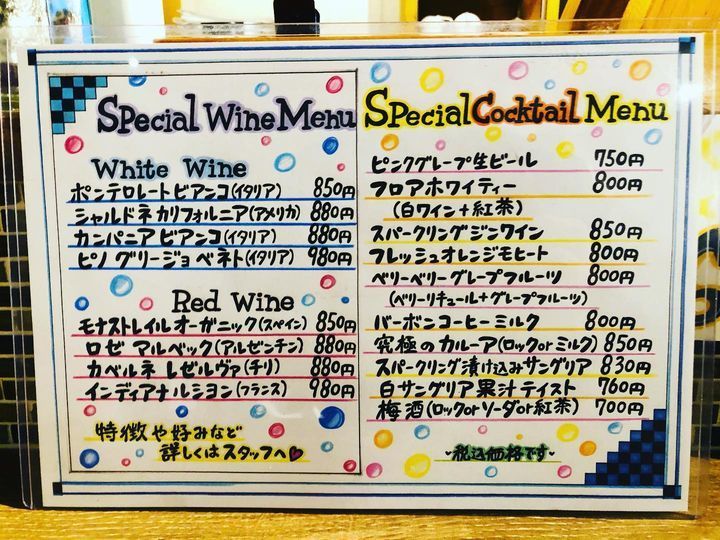 Special Wine Menu
White Wine
ポンテロレートビアンコ(イタリア) 850円
シャルドネカリフォルニア(アメリカ) 880円
カンパニアビアンコ(イタリア) 880円
ピノグリージョベネト(イタリア) 980円
Red Wine
モナストレイルオーガニック(スペイン) 850円
ロゼアルベック(アルゼンチン) 880円
カベルネレゼルヴァ(チリ) 880円
インディアナルシヨン(フランス) 980円
特徴や好みなど
詳しくはスタッフへ♡
Special Cocktail Menu
ピンクグレープ生ビール 750円
フロアホワイティー 800円
(白ワイン+紅茶)
スパークリングジンワイン 850円
フレッシュオレンジモヒート 800円
ベリーベリーグレープフルーツ 800円
(ベリーリキュール+グレープフルーツ)
バーボンコーヒーミルク 800円
究極のカルーア(ロックorミルク) 850円
スパークリング漬け込みサングリア 830円
白サングリア果汁テイスト 760円
梅酒(ロックorソーダor紅茶) 700円
税込価格です